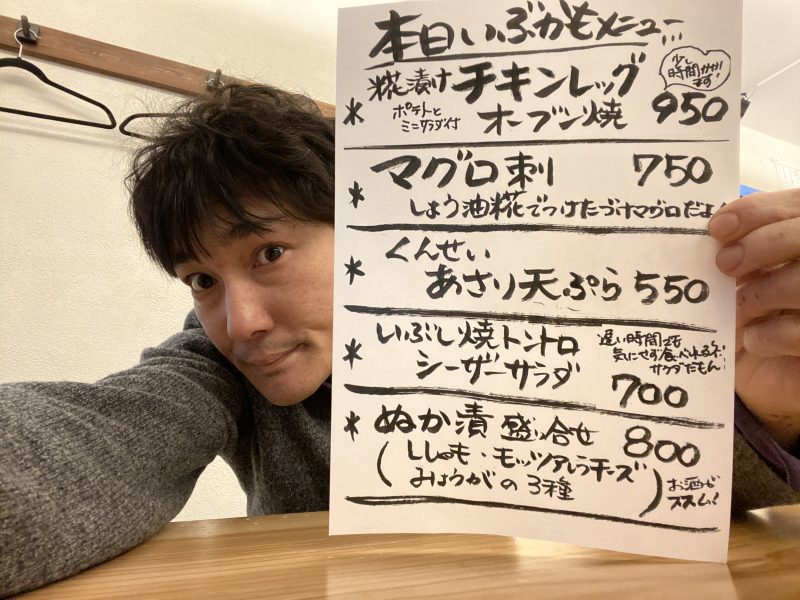 本日いぶかもメニュー…
少し
時間かかります!
*糀漬けチキンレッグ
ポテトと
ミニサラダ付
オーブン焼 950
*マグロ刺 750
しょう油糀でつけたづけマグロだよ!
*くんせい
あさり天ぷら 550
*いぶし焼トントロ
シーザーサラダ
遅い時間でも
気にせず食べれるネ!
サラダだもん!
700
*ぬか漬盛り合せ 800
(ししゃも・モッツアレラチーズ
みょうがの3種)
お酒が
ススム!